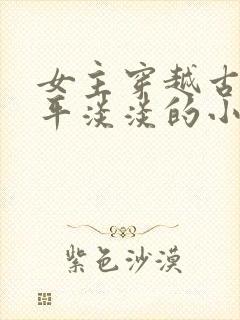 女主穿越古
平淡淡的小
紫色沙漠